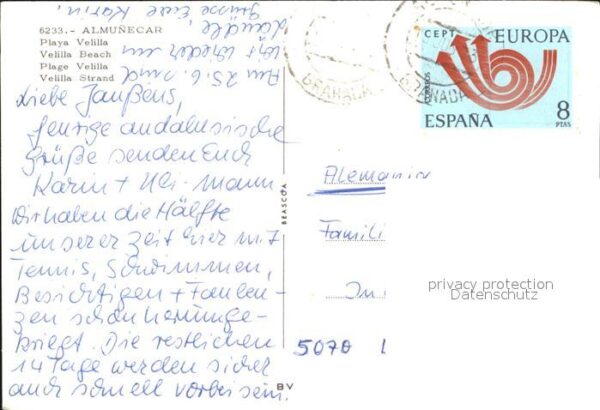 6233.- ALMUÑECAR
Playa Velilla
Velilla Beach
Plage Velilla
Velilla Strand
Liebe Janßens,
feurige andalusische
Grüße senden Euch
Karin + Uli-Mann
Wir haben die Hälfte
unserer Zeit hier mit
Tennis, Schwimmen,
Besichtigen + Faulen-
zen schon herumge-
kriegt. Die restlichen
14 Tage werden sicher
auch schnell vorbei sein.
Am 25.6. sind
wir wieder im
Ländle.
Grüsse Eure Karin,
BEASCOA
BV
CEPT EUROPA
CORREOS
ESPAÑA 8
PTAS
GRANADA
GRANADA
Alemania
Famili
5070
privacy protection
Datenschutz